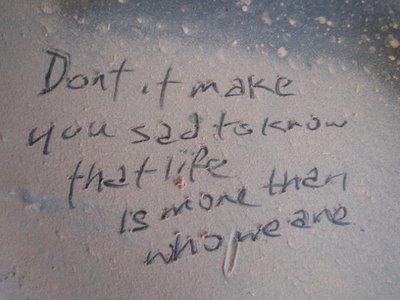 Dont it make
you sad to know
that life
is more than
who we are.